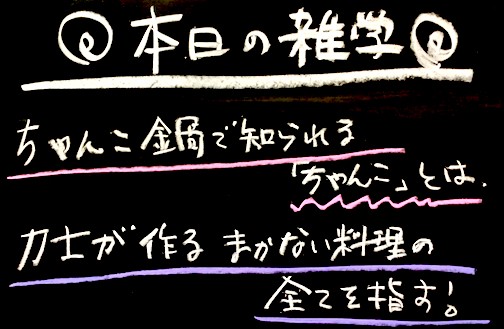 本日の雑学
ちゃんこ鍋で知られる
「ちゃんこ」とは、
力士が作るまかない料理の
全てを指す!